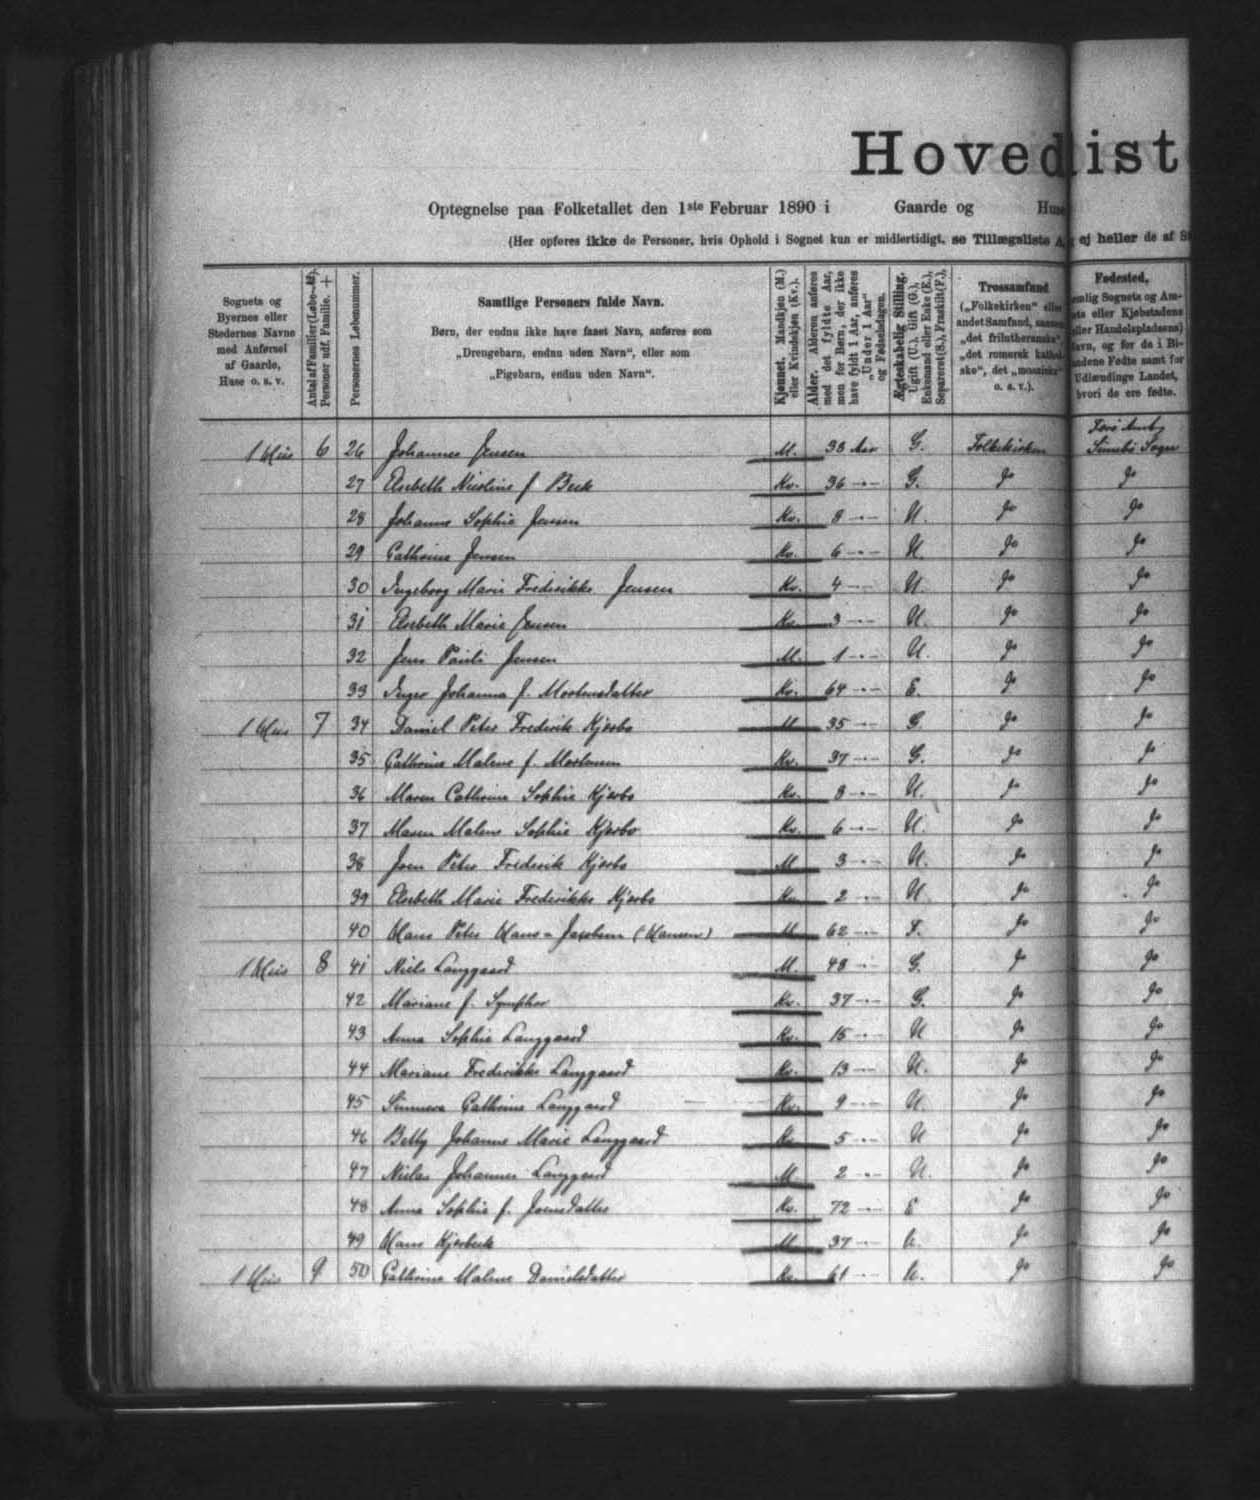 Hovedlist
Optegnelse paa Folketallet den 1ste Februar 1890 i Gaarde og Huse
(Her opføres ikke de Personer, hvis Ophold i Sognet kun er midlertidigt, se Tillægsliste A, ej heller de af
Sognets og Byernes eller Stedernes Navne med Anførsel af Gaarde, Huse o. s. v.
Antal af Familier (Løbe-Nr). Personer udf. Familie. +
Personernes Løbenummer.
Samtlige Personers fulde Navn.
Børn, der endnu ikke have faaet Navn, anføres som
„Drengebarn, endnu uden Navn“, eller som
„Pigebarn, endnu uden Navn“.
Kjønnet. Mandkjøn (M.) eller Kvindekjøn (Kv.).
Alder. Alderen anføres med det fyldte Aar, men for Børn, der ikke have fyldt 1 Aar, anføres „Under 1 Aar“ og Fødselsdagen.
Ægteskabelig Stilling. Ugift (U.), Gift (G.), Enkemand eller Enke (E.), Separeret (S.), Fraskilt (F.).
Trossamfund
(„Folkekirken“ eller andet Samfund, saasom „det frilutheranske“, „det romersk katholske“, det „mosaiske“ o. s. v.).
Fødested,
Sognets og Amtets eller Kjøbstadens eller Handelspladsens) Navn, og for de i Bilandene Fødte samt for Udlændinge Landet, hvori de ere fødte.
Sumbø Sogn
1 Hus 6 26 Johannes Jensen M. 38 Aar G. Folkekirken
27 Elsebeth Nicoline f. Beck Kv. 36 G. Do Do
28 Johanne Sophie Jensen Kv. 8 U. Do Do
29 Cathrine Jensen Kv. 6 U Do Do
30 Ingeborg Marie Frederikke Jensen Kv. 4 U. Do Do
31 Elsebeth Marie Jensen Kv. 3 U. Do Do
32 Jens Pauli Jensen M. 1 U. Do Do
33 Inger Johanna f. Mortensdatter Kv. 64 E. Do Do
1 Hus 7 34 Daniel Peter Frederik Kjærbo M 35 G. Do Do
35 Cathrine Malene f. Mortensen Kv. 37 G. Do Do
36 Maren Cathrine Sophie Kjærbo Kv. 8 U. Do Do
37 Maren Malene Sophie Kjærbo Kv. 6 U. Do Do
38 Joen Peter Frederik Kjærbo M 3 U. Do Do
39 Elsebeth Marie Frederikke Kjærbo Kv. 2 U Do Do
40 Hans Peter Hans - Jacobsen (Hansen) M. 62 F. Do Do
1 Hus 8 41 Niels Langgaard M. 48 G. Do Do
42 Mariane f. Kv. 37 G. Do Do
43 Anna Sophie Langgaard Kv. 15 U Do Do
44 Mariane Frederikke Langgaard Kv. 13 U. Do Do
45 Sunneva Cathrine Langgaard Kv. 9 U. Do Do
46 Betty Johanne Marie Langgaard Kv. 5 U Do Do
47 Johannes Langgaard M 2 U. Do Do
48 Anna Sophie f. Joensdatter Kv. 72 E Do Do
49 Hans Kjærbeck M. 37 U. Do Do
1 Hus 9 50 Cathrine Malene Danielsdatter Kv. 61 U. Do Do